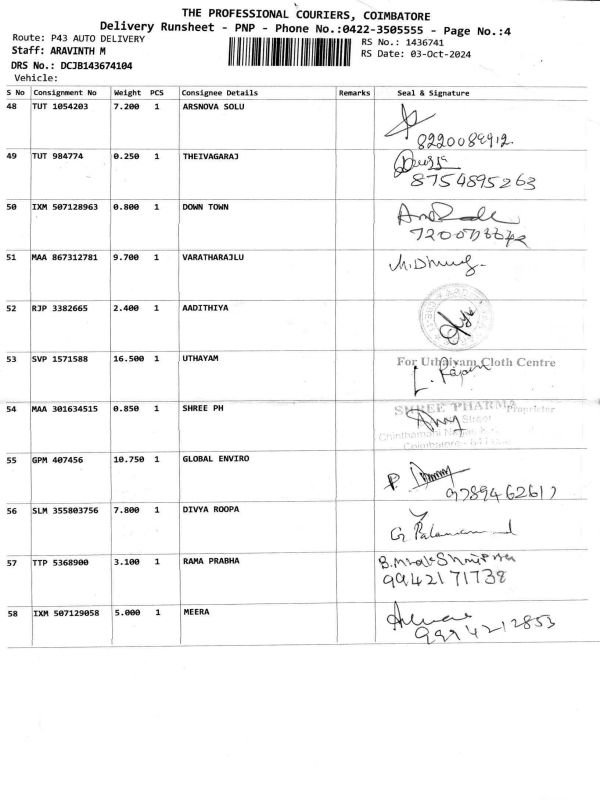 THE PROFESSIONAL COURIERS, COIMBATORE
Delivery Runsheet - PNP - Phone No.:0422-3505555 - Page No.:4
Route: P43 AUTO DELIVERY
RS No.: 1436741
Staff: ARAVINTH M
RS Date: 03-Oct-2024
DRS No.: DCJB143674104
Vehicle:
S No Consignment No Weight PCS Consignee Details Remarks Seal & Signature
48 TUT 1054203 7.200 1 ARSNOVA SOLU
8220089912
49 TUT 984774 0.250 1 THEIVAGARAJ
8754895263
50 IXM 507128963 0.800 1 DOWN TOWN
51 MAA 867312781 9.700 1 VARATHARAJLU
52 RJP 3382665 2.400 1 AADITHIYA
53 SVP 1571588 16.500 1 UTHAYAM For Uthaiyam Cloth Centre
54 MAA 301634515 0.850 1 SHREE PH SHREE PHARMA
Proprietor
Street
55 GPM 407456 10.750 1 GLOBAL ENVIRO
56 SLM 355803756 7.800 1 DIVYA ROOPA
57 TTP 5368900 3.100 1 RAMA PRABHA
9942171738
58 IXM 507129058 5.000 1 MEERA